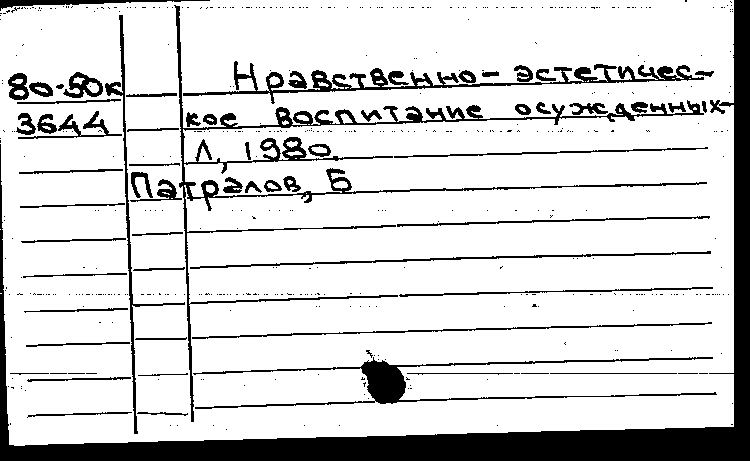 80-50к Нравственно-эстетичес-
3644 кое воспитание осужденных-
Л., 1980.
Патралов, Б